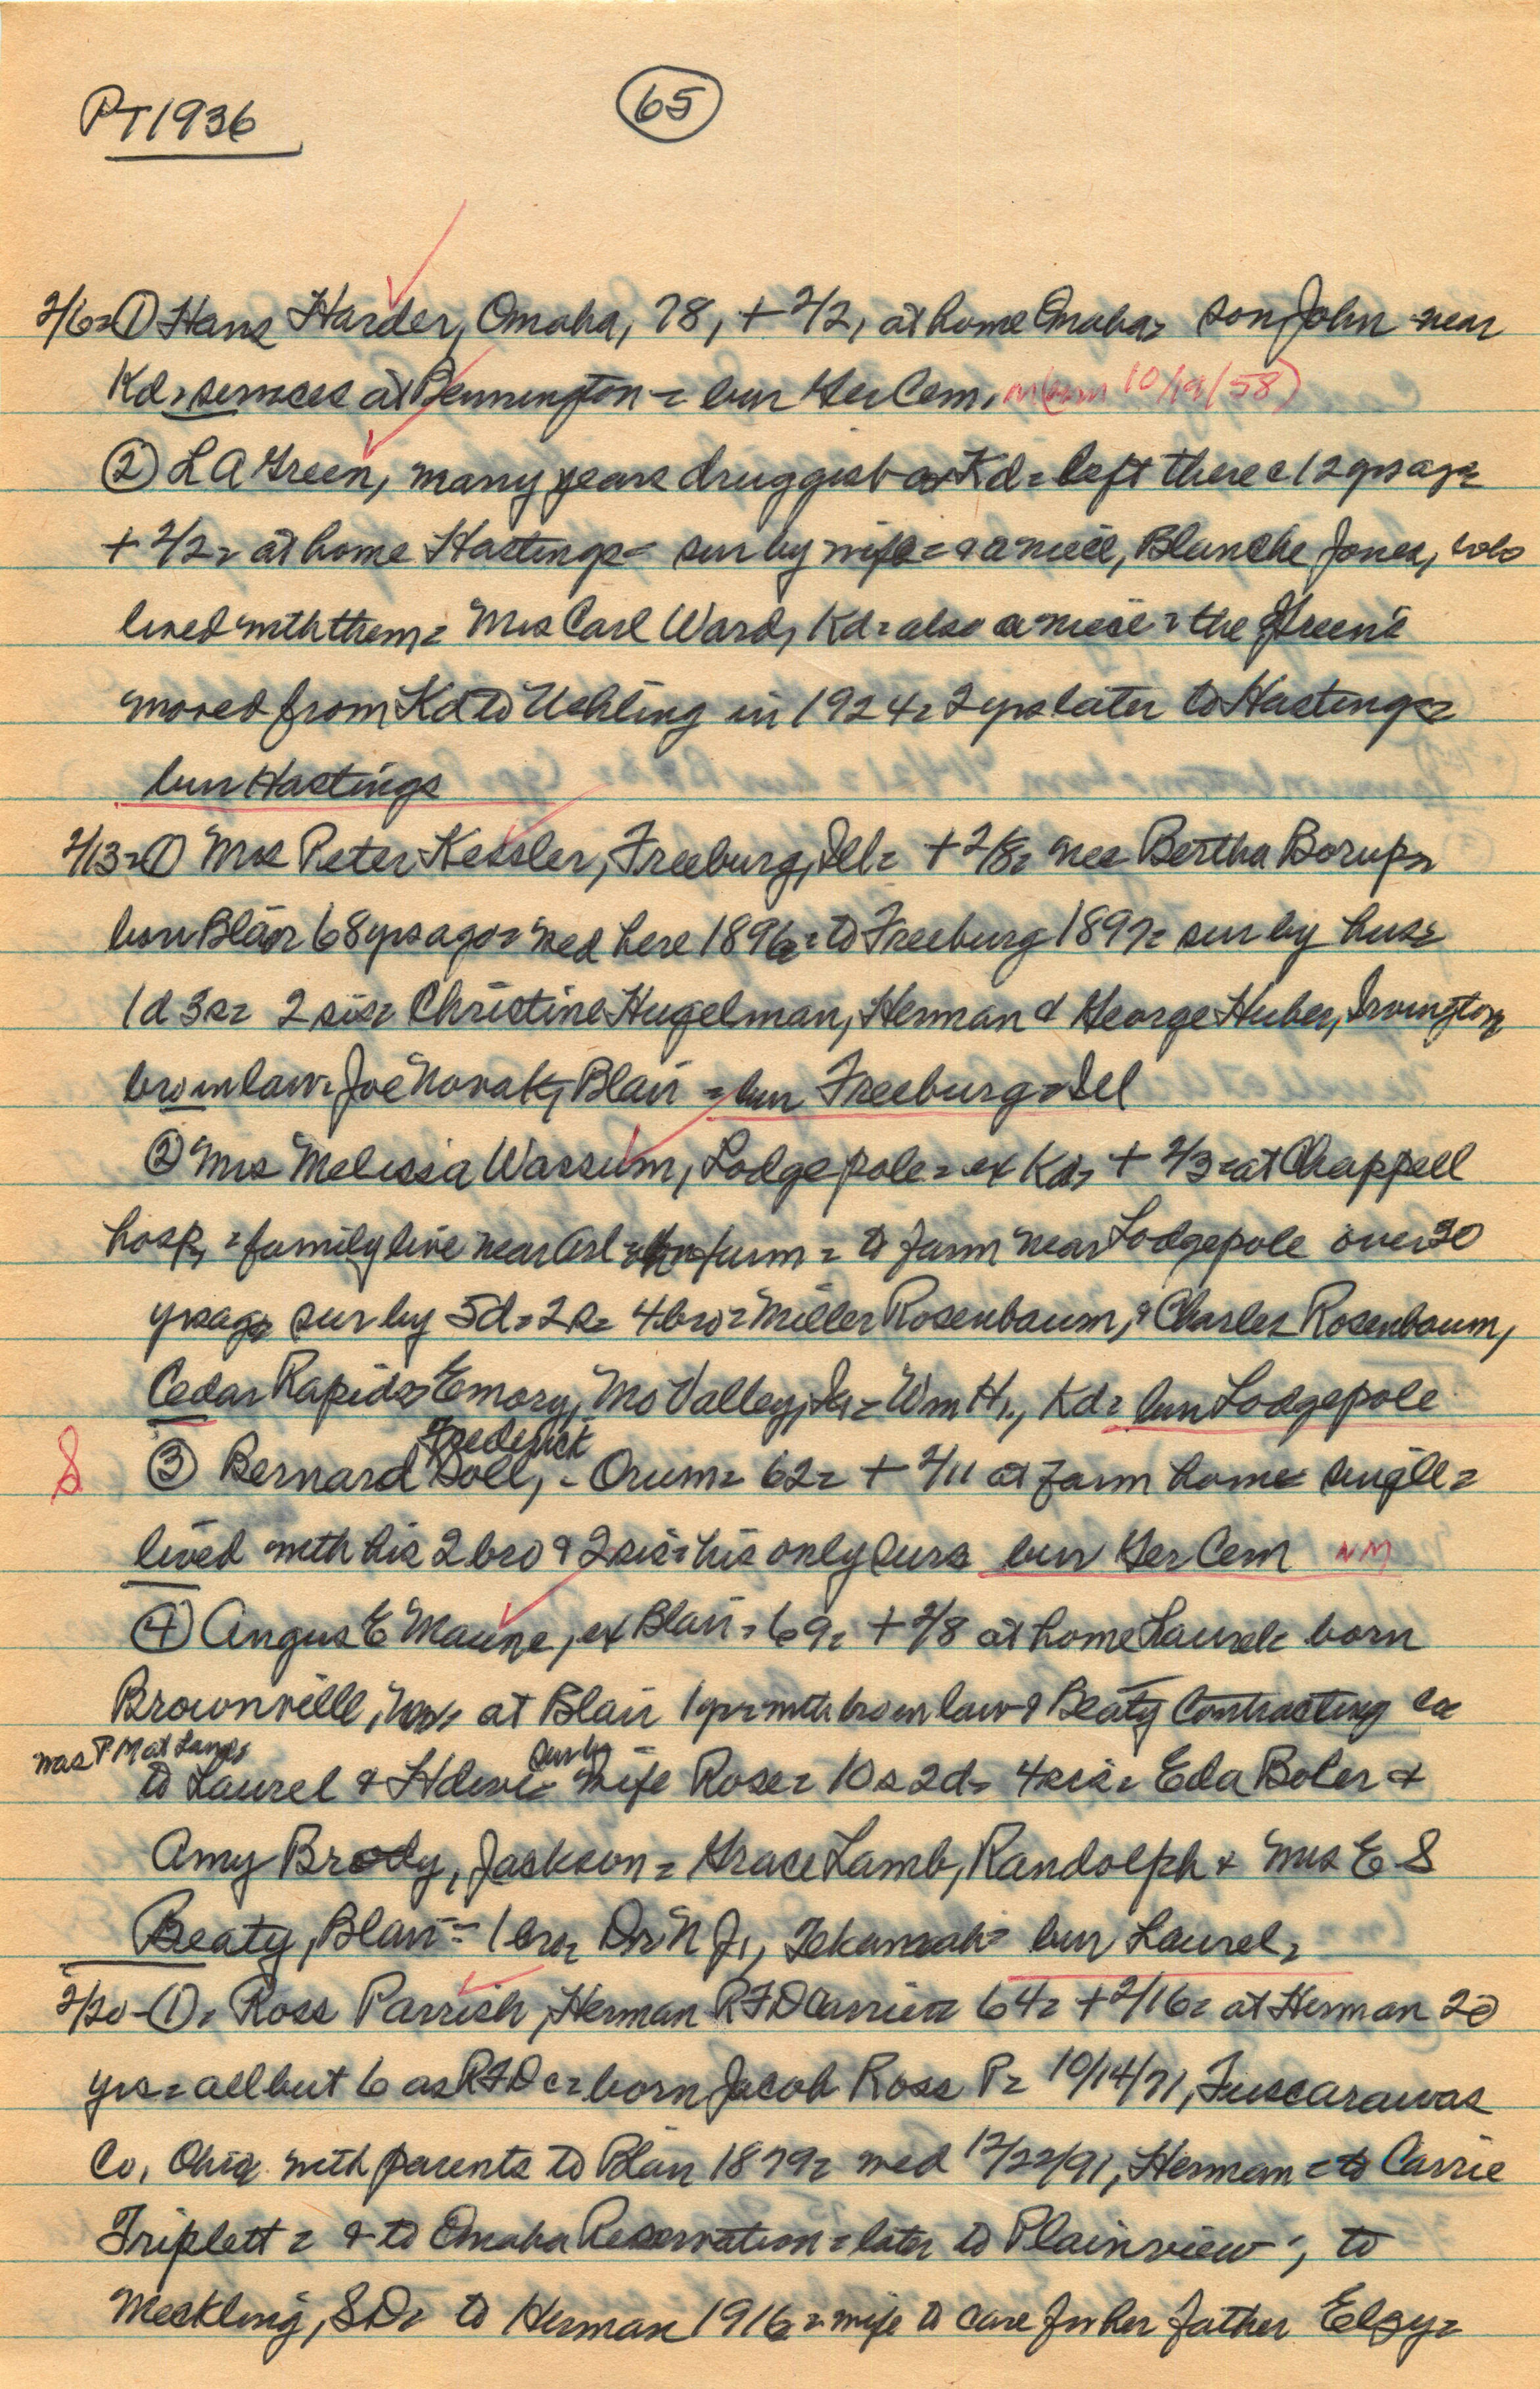 PT1936
65
2/6= ① Hans Harder, Omaha, 78, + 2/2, at home Omaha= son John near
Kd, services at Bennington = bur Ger Cem, 10/19/58)
② L A Green, many years druggist at Kd = left there c 12 yrs ago=
+ 2/2= at home Hastings= sur by wife= & a niece, Blanche Jones, who
lived with them= Mrs Carl Ward, Kd= also a niece= the Green's
moved from Kd to Uehling in 1924= 2 yrs later to Hastings=
bur Hastings
2/13= ① Mrs Peter Kessler, Freeburg, Ill= + 2/8= nee Bertha Borup=
born Blair 68 yrs ago= med here 1896= to Freeburg 1897= sur by hus=
1d 3s= 2 sis= Christine Hugelman, Herman & George Huber, Irvington
bro in law= Joe Novak, Blair = bur Freeburg= Ill
② Mrs Melissa Wassum, Lodgepole= ex Kd, + 2/3= at Chappell
hosp, = family live near Arl = on farm = to farm near Lodgepole over 30
yrs ago sur by 5d= 2s= 4 bro= Miller Rosenbaum, & Charles Rosenbaum,
Cedar Rapids= Emory, Mo Valley, Ia= Wm H., Kd= bur Lodgepole
S ③ Bernard Frederick Doll, - Orum= 62= + 2/11 at farm home= single=
lived with his 2 bro & 2 sis= his only surs bur Ger Cem NM
④ Angus E Maune, ex Blair= 69= + 2/8 at home Laurel= born
Brownville, at Blair 1 yr= with bro in law & Beaty Contracting Co
was PM at Laurel
to Laurel & Hdwe= sur by wife Rose= 10s 2d= 4 sis= Eda Boler &
Amy Brody, Jackson= Grace Lamb, Randolph & Mrs E S
Beaty, Blair= 1 bro= Dr N J, Tekamah= bur Laurel=
2/20- ①= Ross Parrish, Herman RFD Carrier= 64= + 2/16= at Herman 20
yrs= all but 6 as RFD c= born Jacob Ross P= 10/14/71, Tuscarawas
Co, Ohio with parents to Blair 1879= med 12/22/91, Herman = to Carrie
Triplett = & to Omaha Reservation = later to Plainview, to
Meckling, SD= to Herman 1916= wife to care for her father Elzy=